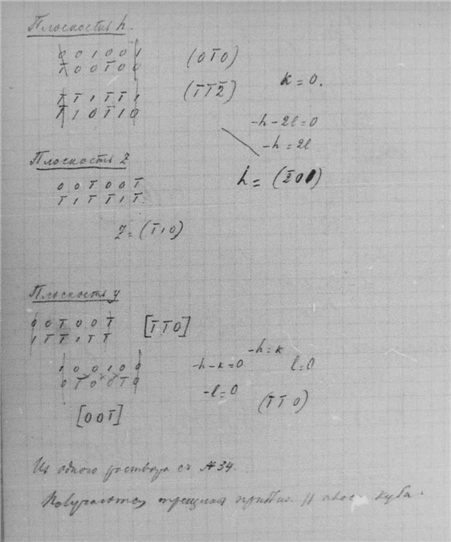 Плоскость h.
0 0 1 0 0 1
1̅ 0 0 1̅ 0 0
(0 1̅ 0)
1̅ 1̅ 1 1̅ 1̅ 1
1̅ 1 0 1̅ 1 0
(1̅ 1̅ 2̅)
k = 0.
-h-2l=0
-h=2l
h = (2̅ 0 1)
Плоскость z
0 0 1̅ 0 0 1̅
1̅ 1 1̅ 1̅ 1 1̅
z = (1̅ 1 0)
Плоскость y
0 0 1̅ 0 0 1̅
1 1̅ 1̅ 1 1̅ 1̅
[1̅ 1̅ 0]
1 0 0 1 0 0
0 1̅ 0 0 1̅ 0
-h-k=0
-h=k
l=0
-l=0
(1̅ 1̅ 0)
[0 0 1̅]
Из одного раствора с №34.
Получаются куба.